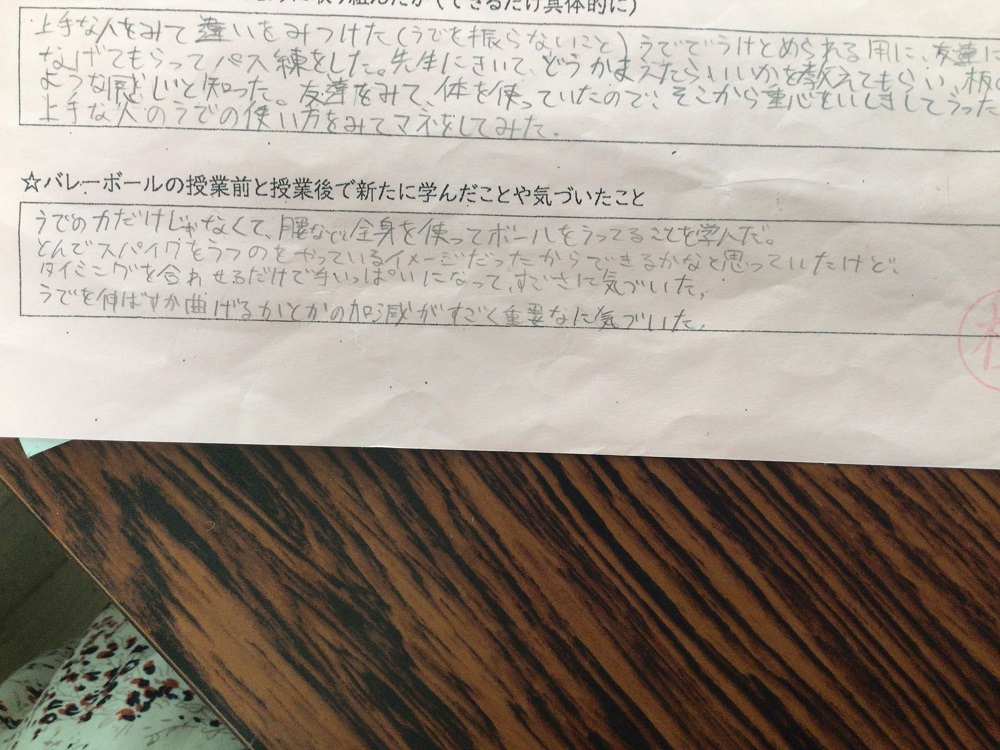 に取り組んだか（できるだけ具体的に）
上手な人をみて違いをみつけた（うでを振らないこと）うででうけとめられる用に、友達に
なげてもらってパス練をした。先生にきいて、どうかまえたらいいかを教えてもらい、板の
ような感じと知った。友達をみて、体を使っていたので、そこから重心をいしきしてうった
上手な人のうでの使い方をみてマネをしてみた。
☆バレーボールの授業前と授業後で新たに学んだことや気づいたこと
うでの力だけじゃなくて、腰など、全身を使ってボールをうってることを学んだ。
とんでスパイクをうつのをやっているイメージだったからできるかなと思っていたけど、
タイミングを合わせるだけで手いっぱいになって、すごさに気づいた。
うでを伸ばすか曲げるかとかの加減がすごく重要なに気づいた。